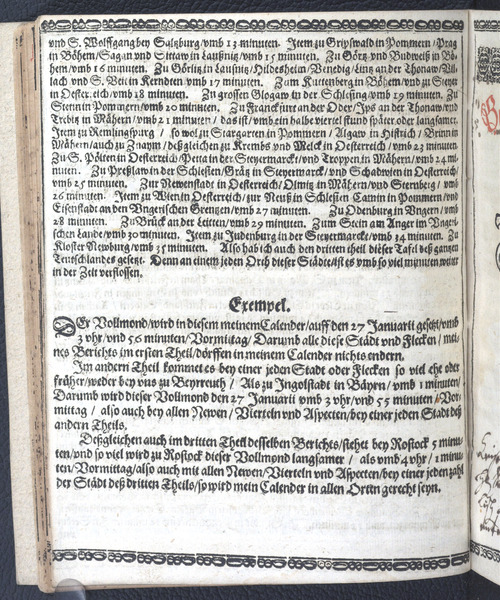 vnd S. Wolffgang bey Saltzburg/vmb 13 minuten. Item zu Gripswald in Pommern/Prag
in Böhem/Sagan vnd Sittaw in Laußnitz/vmb 15 minuten. Zu Görtz vnd Budweiß in Bö-
hem/vmb 16 minuten. Zu Görlitz in Laußnitz/Hildesheim/Venedig/Lintz an der Thonaw/Vil-
lach vnd S. Veit in Kerndten vmb 17 minuten. Zum Kuttenberg in Böhem/vnd zu Steyer
in Oesterreich/vmb 18 minuten. Zu grossen Glogaw in der Schlesing/vmb 19 minuten. Zu
Stettin in Pommern/vmb 20 minuten. Zu Franckfurt an der Oder/Ips an der Thonaw/vnd
Trebitz in Mähern/vmb 21 minuten/das ist/vmb ein halbe viertel stund später oder langsamer.
Item zu Remlingspurg/so wol zu Stargarten in Pommern/Algaw in Histrich/Brinn in
Mähern/auch zu Znaym/deßgleichen zu Krembs vnd Melck in Oesterreich/vmb 23 minuten
Zu S. Pölten in Oesterreich/Petta in der Steyermarckt/vnd Troppen in Mähern/vmb 24 mi-
nuten. Zu Preßlaw in der Schlesien/Gräz in Steyermarck/vnd Schadwien in Oesterreich/
vmb 25 minuten. Zur Newenstadt in Oesterreich/Olmitz in Mähern/vnd Sternberg/vmb
26 minuten. Item zu Wien in Oesterreich/zur Neuß in Schlesien Camin in Pommern/vnd
Eisenstadt an den Vngerischen Grentzen/vmb 27 minuten. Zu Odenburg in Vngern/vmb
28 minuten. Zu Brück an der Leitten/vmb 29 minuten. Zum Stein am Anger im Vngeri-
schen Lande/vmb 30 minuten. Item zu Judenburg in der Steyermarckt/vmb 34 minuten. Zu
Kloster Newburg/vmb 35 minuten. Also hab ich auch den dritten theil dieser Tafel deß gantzen
Teutschlandes gesetzt. Denn an einem jeden Orth dieser Städte/ist es vmb so viel minuten weiter
in der Zeit verflossen.
Exempel.
DEr Vollmond/wird in diesem meinem Calender/auff den 27 Januarii gesetzt/vmb
3 vhr/vnd 56 minuten/Vormittag/Darumb alle diese Städt vnd Flecken/mei-
nes Berichts im ersten Theil/dörffen in meinem Calender nichts endern.
Im andern Theil kommet es bey einer jeden Stadt oder Flecken so viel ehe oder
früher/weder bey vns zu Beyrreuth/Als zu Ingolstadt in Bäyrn/vmb 1 minuten/
Darumb wird dieser Vollmond den 27 Januarii vmb 3 vhr/vnd 55 minuten/Vor-
mittag/also auch bey allen Newen/Vierteln vnd Aspecten/bey einer jeden Stadt deß
andern Theils.
Deßgleichen auch im dritten Theil desselben Berichts/stehet bey Rostock 5 minu-
ten/vnd so viel wird zu Rostock dieser Vollmond langsamer/als vmb 4 vhr/1 minu-
ten/Vormittag/also auch mit allen Newen/Vierteln vnd Aspecten/bey einer jeden zahl
der Städt deß dritten Theils/so wird mein Calender in allen Orten gerecht seyn.